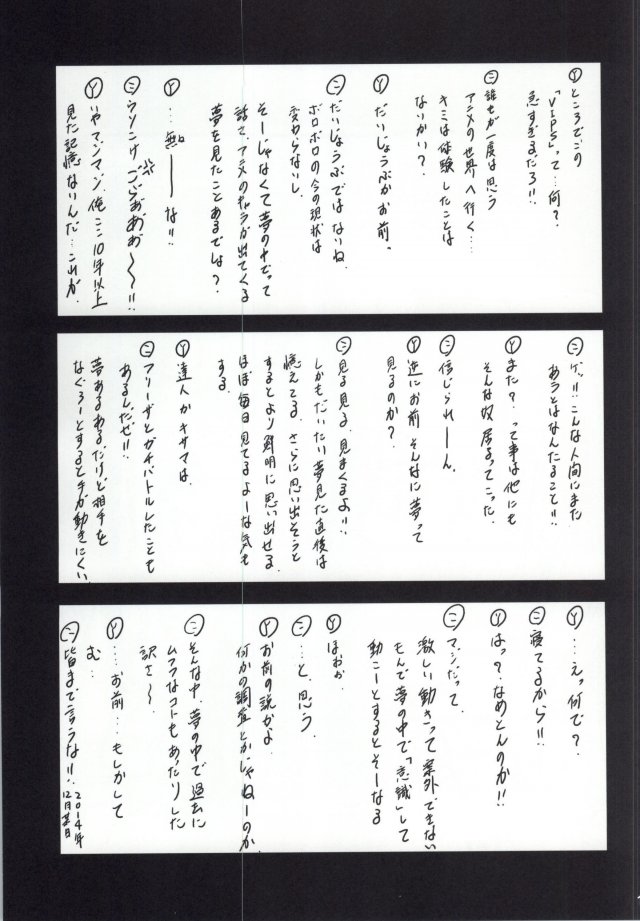 Ⓨところでこの
「VIPS」って…何？
怠すぎるだろ!!
㊁誰もが一度は思う
アニメの世界へ行く……
キミは体験したことは
ないかい？
Ⓨだいじょうぶかお前っ
㊁だいじょうぶではないね、
ボロボロの今の現状は
変わらないし
そーじゃなくて夢の中でって
話で、アニメのキャラが出てくる
夢を見たことあるでしょ？
Ⓨ…無ーーな!!
㊁ウソこけ、ごらぁぁぁ〜〜!!
Ⓨいやマンマン、俺ここ10年以上
見た記憶ないんだ…これが、
㊁ゲ!!こんな人間にまた
あうとはなんたること!!
Ⓨまた？って事は他にも
そんな奴居るってこった、
㊁信じられーーん、
Ⓨ逆にお前そんなに夢って
見るのか？
㊁見る見る、見まくるよ!!
しかもだいたい夢見た直後は
憶えてる、さらに思い出そうと
するとより鮮明に思い出せる、
ほぼ毎日見てるよーな気も
する、
Ⓨ達人かキサマは、
㊁フリーザとガチバトルしたことも
あるしだぜ!!
夢あるあるだけど相手を
なぐろーとすると手が動きにくい、
Ⓨ…えっ何で？
㊁寝てるから!!
Ⓨはっ？なめとんのか!!
㊁マジだって、
激しい動きって案外できない
もんで夢の中で「意識」して
動こーとするとそーなる
Ⓨほぉか
㊁…と、思う、
Ⓨお前の説かよ、
何かの調査とかじゃねーのか、
㊁そんな中、夢の中で過去に
ムフフなコトもあったりした
訳さ〜、
Ⓨ……お前…もしかして
む…
㊁皆まで言うな!!
2014年
12月某日